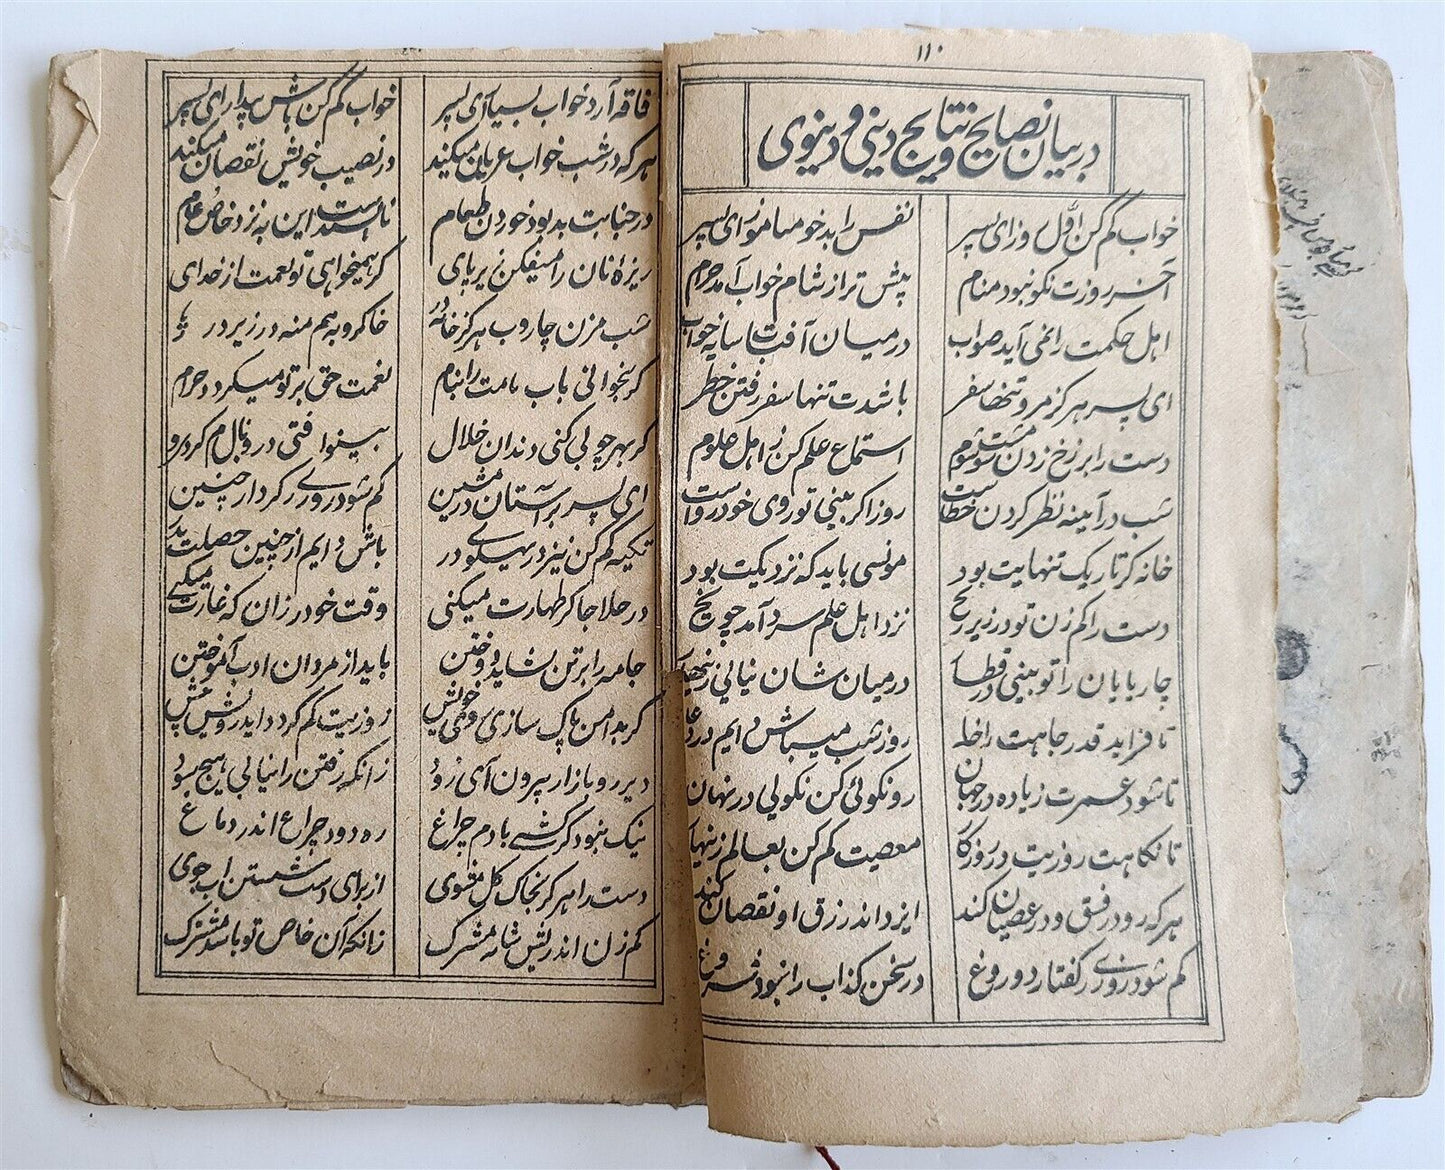 ۱۱۰
در بیان نصایح و نتایج دینی و دنیوی
خواب کم کن اول روز ای پسر نفس را بدخو میاموز ای پسر
آخر روزت نکو نبود منام پیش تر از شام خواب آمد حرام
اهل حکمت را نمی آید صواب در میان آفتاب سایه خواب
ای پسر هرگز مرو تنها سفر باشدت تنها سفر رفتن خطر
دست را بر رخ زدن شومست شوم استماع علم کن ز اهل علوم
شب در آیینه نظر کردن خطاست روز اگر بینی تو روی خود رواست
خانه گر تاریک تنهایت بود مونسی باید که نزدیکت بود
دست را کم زن تو در زیر زنخ نزد اهل علم سرد آمد چو یخ
چارپایان را تو بینی در قطار در میان شان نیائی زنهار
تا فزاید قدر جاهت را خدا روز شب میباش دایم در دعا
تا شود عمرت زیاده در جهان رو نکوئی کن نکوئی در نهان
تا نکاهت روزیت در روزگار معصیت کم کن بعالم زنهار
هر که رو در فسق و در عصیان کند ایزد اندر رزق او نقصان کند
کم شود روزی ز گفتار دروغ در سخن کذاب را نبود فروغ
فاقه آرد خواب بسیار ای پسر خواب کم کن باش بیدار ای پسر
هر که در شب خواب عریان میکند در نصیب خویش نقصان میکند
در جنابت بد بود خوردن طعام ناپسندست این به نزد خاص عام
ریزۀ نان را میفکن زیر پای گر همیخواهی تو نعمت از خدای
شب مزن جاروب هرگز خانه در خاکروبه هم منه در زیر در
گر بخوانی باب مامت را بنام نعمت حق بر تو میگردد حرام
گر بهر چوبی کنی دندان خلال بینوا افتی و در وبال
ای پسر بر آستان در مشین کم شود روزی ز کردار چنین
تکیه کم کن نیز در پهلوی در باش دایم از چنین خصلت بدر
در خلا جا گر طهارت میکنی وقت خود را زان که غارت میکنی
جامه را بر تن نشاید دوختن باید از مردان ادب آموختن
گر بدامن پاک سازی روی خویش روزیت کم گردد ای درویش بیش
دیر رو بازار بیرون آی زود زانکه رفتن را نیابی هیچ سود
نیک نبود گر کشی بادم چراغ ره دود چراغ اندر دماغ
دست را هرگز بخاک گل مشوی از برای دست شستن آب جوی
کم زن اندر ریش شانه مشترک زانکه آن خاص تو باشد مشترک